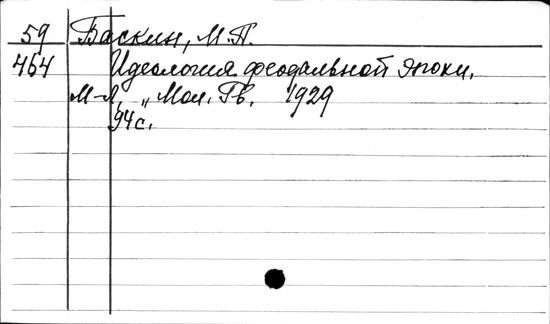 59 Баскин, М.П.
464 Идеология феодальной эпохи.
М-Л, „Мол. Гв. 1929
94 с.